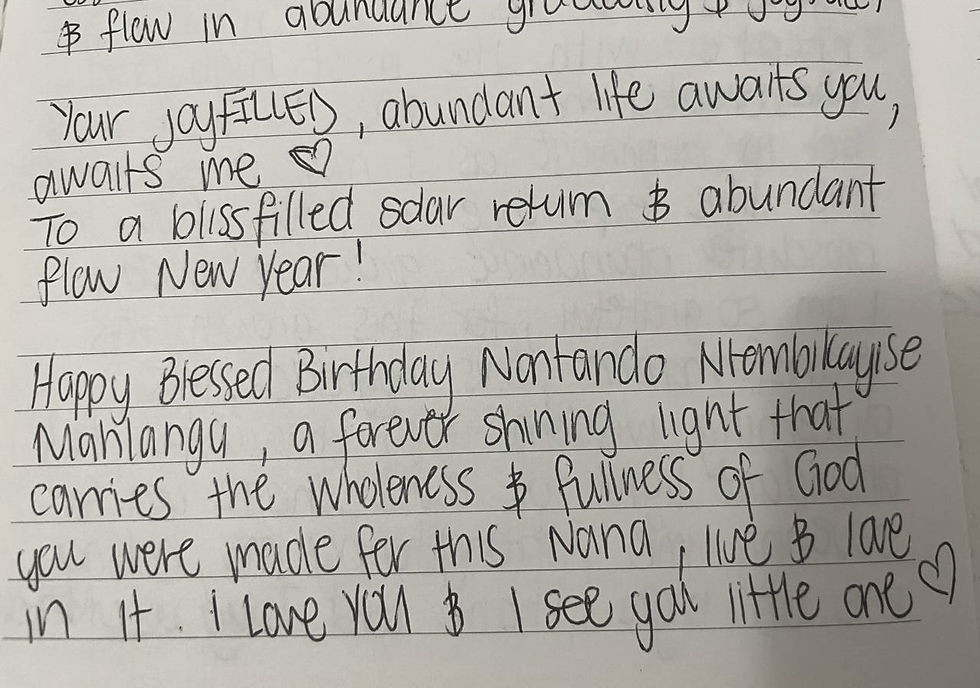 & flow in abundance
Your joyFILLED, abundant life awaits you,
awaits me ♡
To a blissfilled solar return & abundant
flow New Year!
Happy Blessed Birthday Nontando Ntombikayise
Mahlangu, a forever shining light that
carries the wholeness & fullness of God
you were made for this Nana, live & love
in it. I Love You & I see you little one ♡